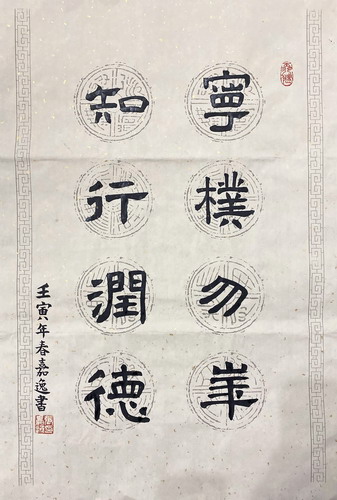 寧樸勿華
知行潤德
壬寅年春嘉逸書